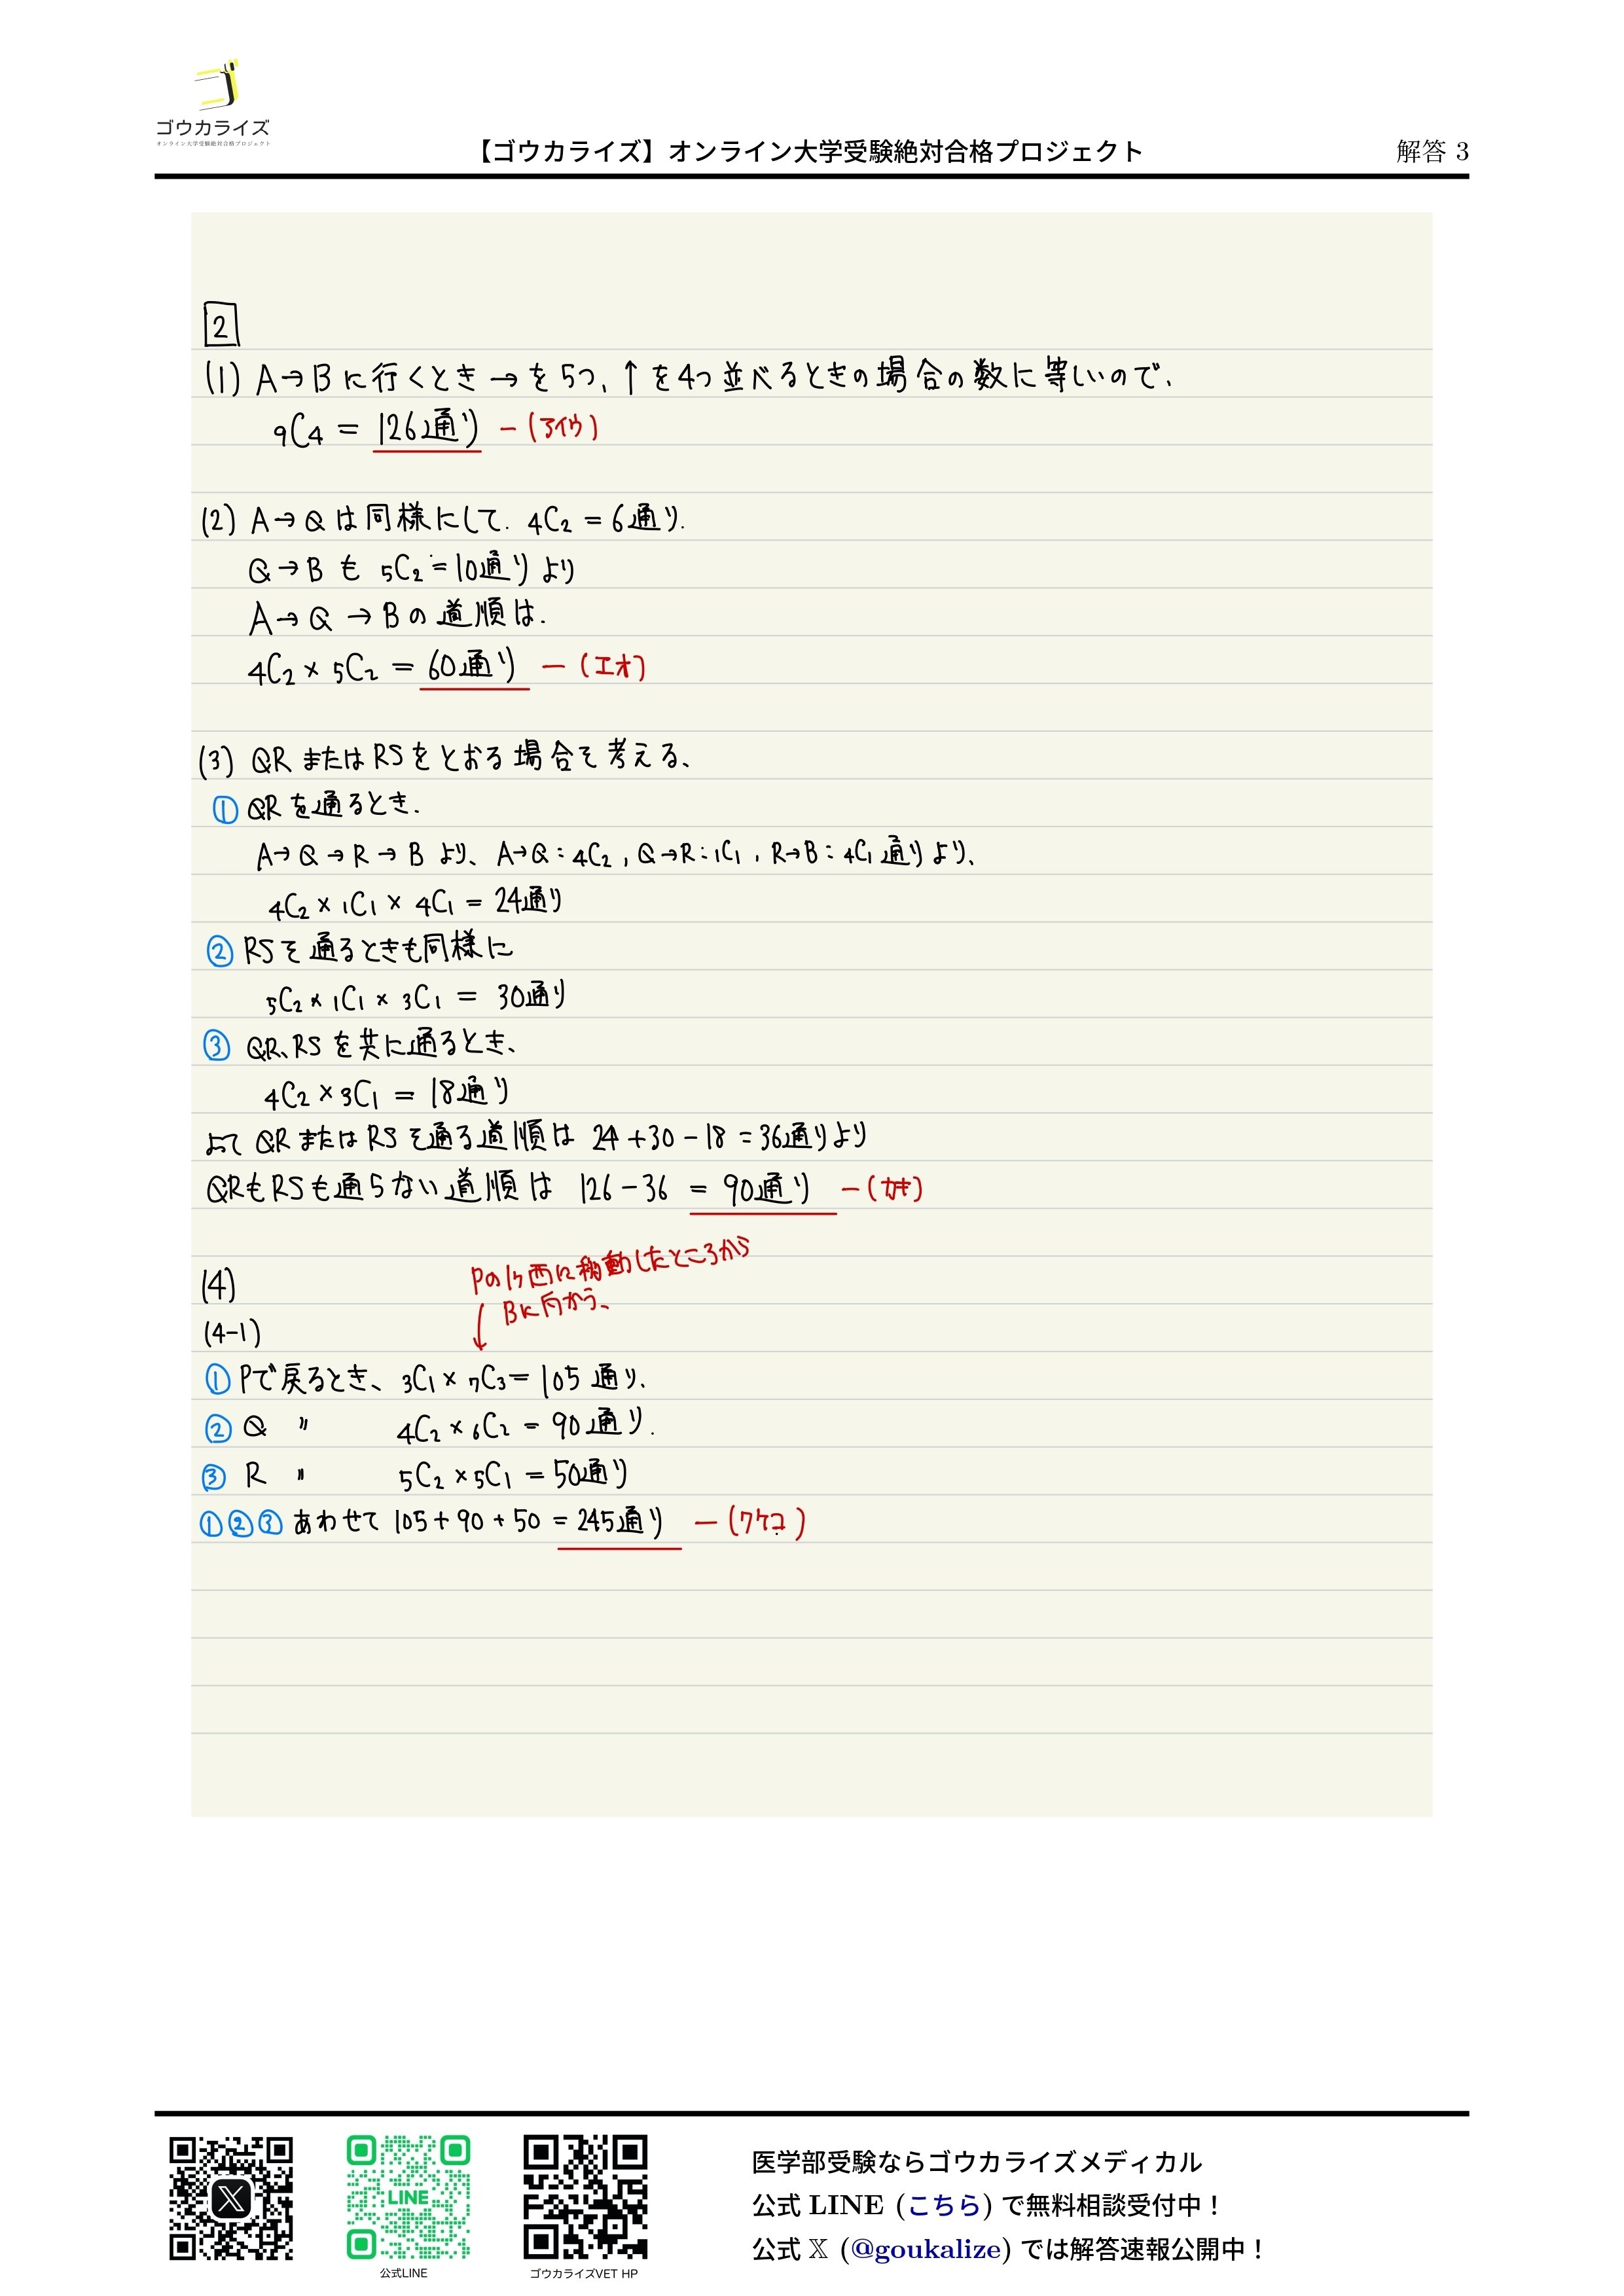 ゴウカライズ
オンライン大学受験絶対合格プロジェクト
【ゴウカライズ】オンライン大学受験絶対合格プロジェクト
解答 3
2
(1) A→Bに行くとき→を5つ、↑を4つ並べるときの場合の数に等しいので、
₉C₄ = 126通り ー(アイウ)
(2) A→Qは同様にして. ₄C₂ = 6通り.
Q→Bも ₅C₂ = 10通りより
A→Q→Bの道順は.
₄C₂ × ₅C₂ = 60通り ー(エオ)
(3) QRまたはRSをとおる場合を考える、
① QRを通るとき.
A→Q→R→Bより、A→Q:₄C₂, Q→R:₁C₁, R→B:₄C₁通りより、
₄C₂ × ₁C₁ × ₄C₁ = 24通り
② RSを通るときも同様に
₅C₂ × ₁C₁ × ₃C₁ = 30通り
③ QR、RSを共に通るとき、
₄C₂ × ₃C₁ = 18通り
よってQRまたはRSを通る道順は 24 + 30 - 18 = 36通りより
QRもRSも通らない道順は 126 - 36 = 90通り ー(カキ)
(4)
Pの1ヶ西に移動したところから
Bに向かう、
↓
(4-1)
① Pで戻るとき、₃C₁ × ₇C₃ = 105通り.
② Q 〃 ₄C₂ × ₆C₂ = 90通り.
③ R 〃 ₅C₂ × ₅C₁ = 50通り
①②③ あわせて 105 + 90 + 50 = 245通り ー(クケコ)
LINE
公式LINE
ゴウカライズVET HP
医学部受験ならゴウカライズメディカル
公式 LINE (こちら) で無料相談受付中！
公式 𝕏 (@goukalize) では解答速報公開中！